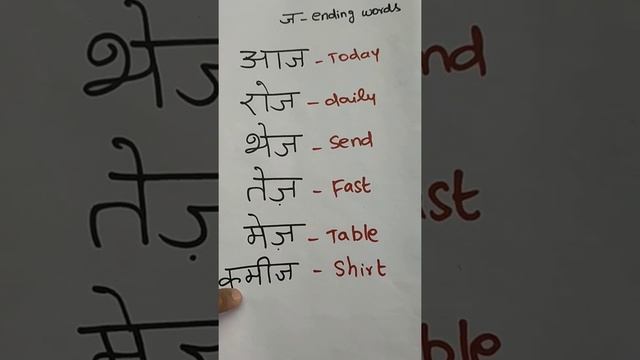 ज - ending words
आज - Today
रोज - daily
भेज - Send
तेज़ - Fast
मेज़ - Table
कमीज - Shirt